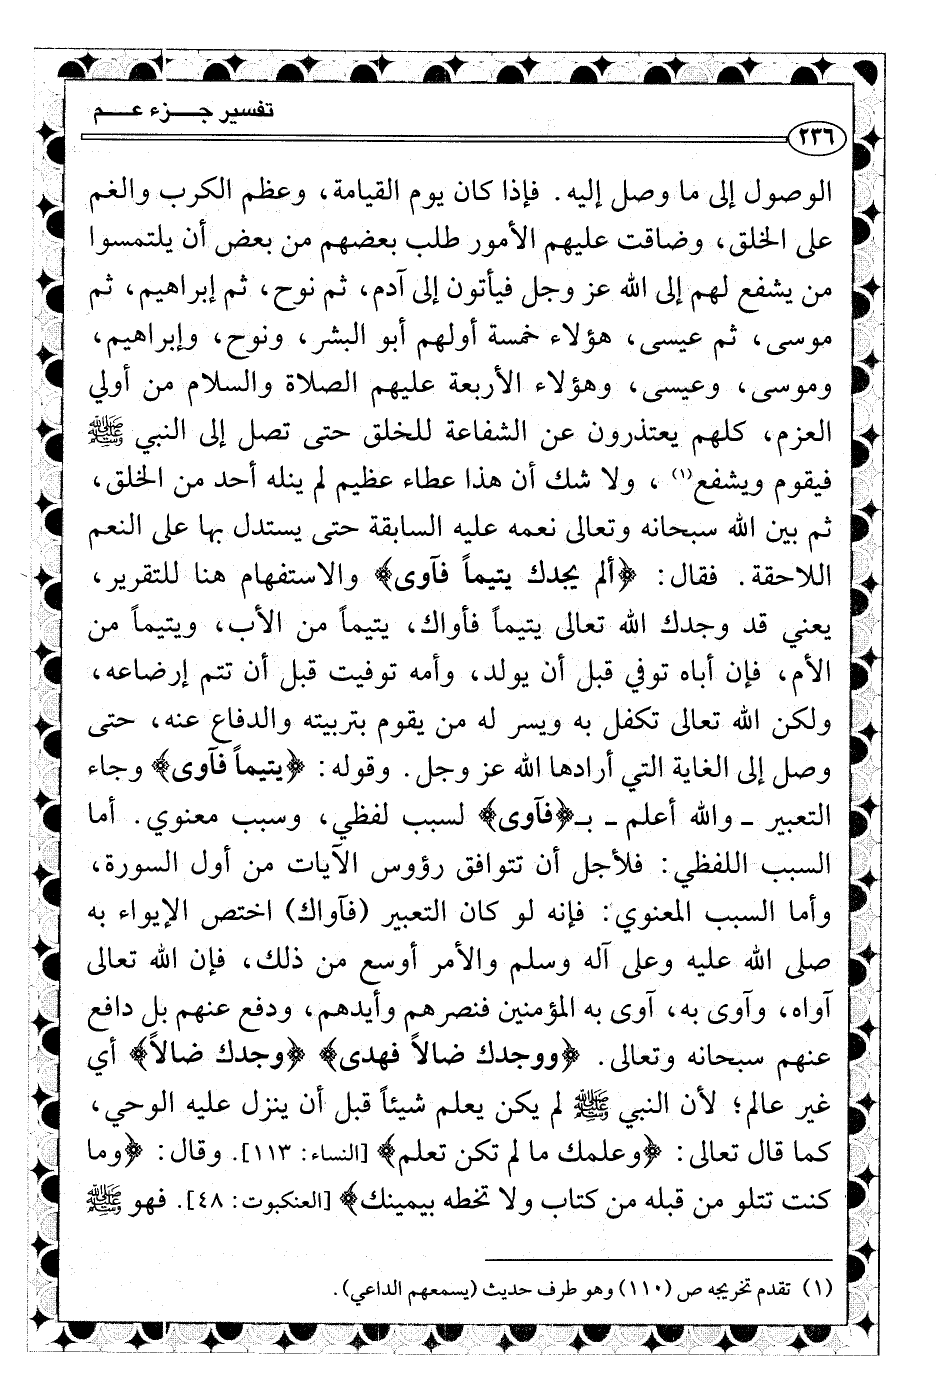 تفسير جزء عم
٢٣٦
الوصول إلى ما وصل إليه. فإذا كان يوم القيامة، وعظم الكرب والغم
على الخلق، وضاقت عليهم الأمور طلب بعضهم من بعض أن يلتمسوا
من يشفع لهم إلى الله عز وجل فيأتون إلى آدم، ثم نوح، ثم إبراهيم، ثم
موسى، ثم عيسى، هؤلاء خمسة أولهم أبو البشر، ونوح، وإبراهيم،
وموسى، وعيسى، وهؤلاء الأربعة عليهم الصلاة والسلام من أولي
العزم، كلهم يعتذرون عن الشفاعة للخلق حتى تصل إلى النبي ﷺ
فيقوم ويشفع(١)، ولا شك أن هذا عطاء عظيم لم ينله أحد من الخلق،
ثم بين الله سبحانه وتعالى نعمه عليه السابقة حتى يستدل بها على النعم
اللاحقة. فقال: ﴿ألم يجدك يتيماً فآوى﴾ والاستفهام هنا للتقرير،
يعني قد وجدك الله تعالى يتيماً فأواك، يتيماً من الأب، ويتيماً من
الأم، فإن أباه توفي قبل أن يولد، وأمه توفيت قبل أن تتم إرضاعه،
ولكن الله تعالى تكفل به ويسر له من يقوم بتربيته والدفاع عنه، حتى
وصل إلى الغاية التي أرادها الله عز وجل. وقوله: ﴿يتيماً فآوى﴾ وجاء
التعبير ـ والله أعلم ـ بـ﴿فآوى﴾ لسبب لفظي، وسبب معنوي. أما
السبب اللفظي: فلأجل أن تتوافق رؤوس الآيات من أول السورة،
وأما السبب المعنوي: فإنه لو كان التعبير (فآواك) اختص الإيواء به
صلى الله عليه وعلى آله وسلم والأمر أوسع من ذلك، فإن الله تعالى
آواه، وآوى به، آوى به المؤمنين فنصرهم وأيدهم، ودفع عنهم بل دافع
عنهم سبحانه وتعالى. ﴿ووجدك ضالاً فهدى﴾ ﴿وجدك ضالاً﴾ أي
غير عالم؛ لأن النبي ﷺ لم يكن يعلم شيئاً قبل أن ينزل عليه الوحي،
كما قال تعالى: ﴿وعلمك ما لم تكن تعلم﴾ [النساء: ١١٣]. وقال: ﴿وما
كنت تتلو من قبله من كتاب ولا تخطه بيمينك﴾ [العنكبوت: ٤٨]. فهو ﷺ
(١) تقدم تخريجه ص (١١٠) وهو طرف حديث (يسمعهم الداعي).